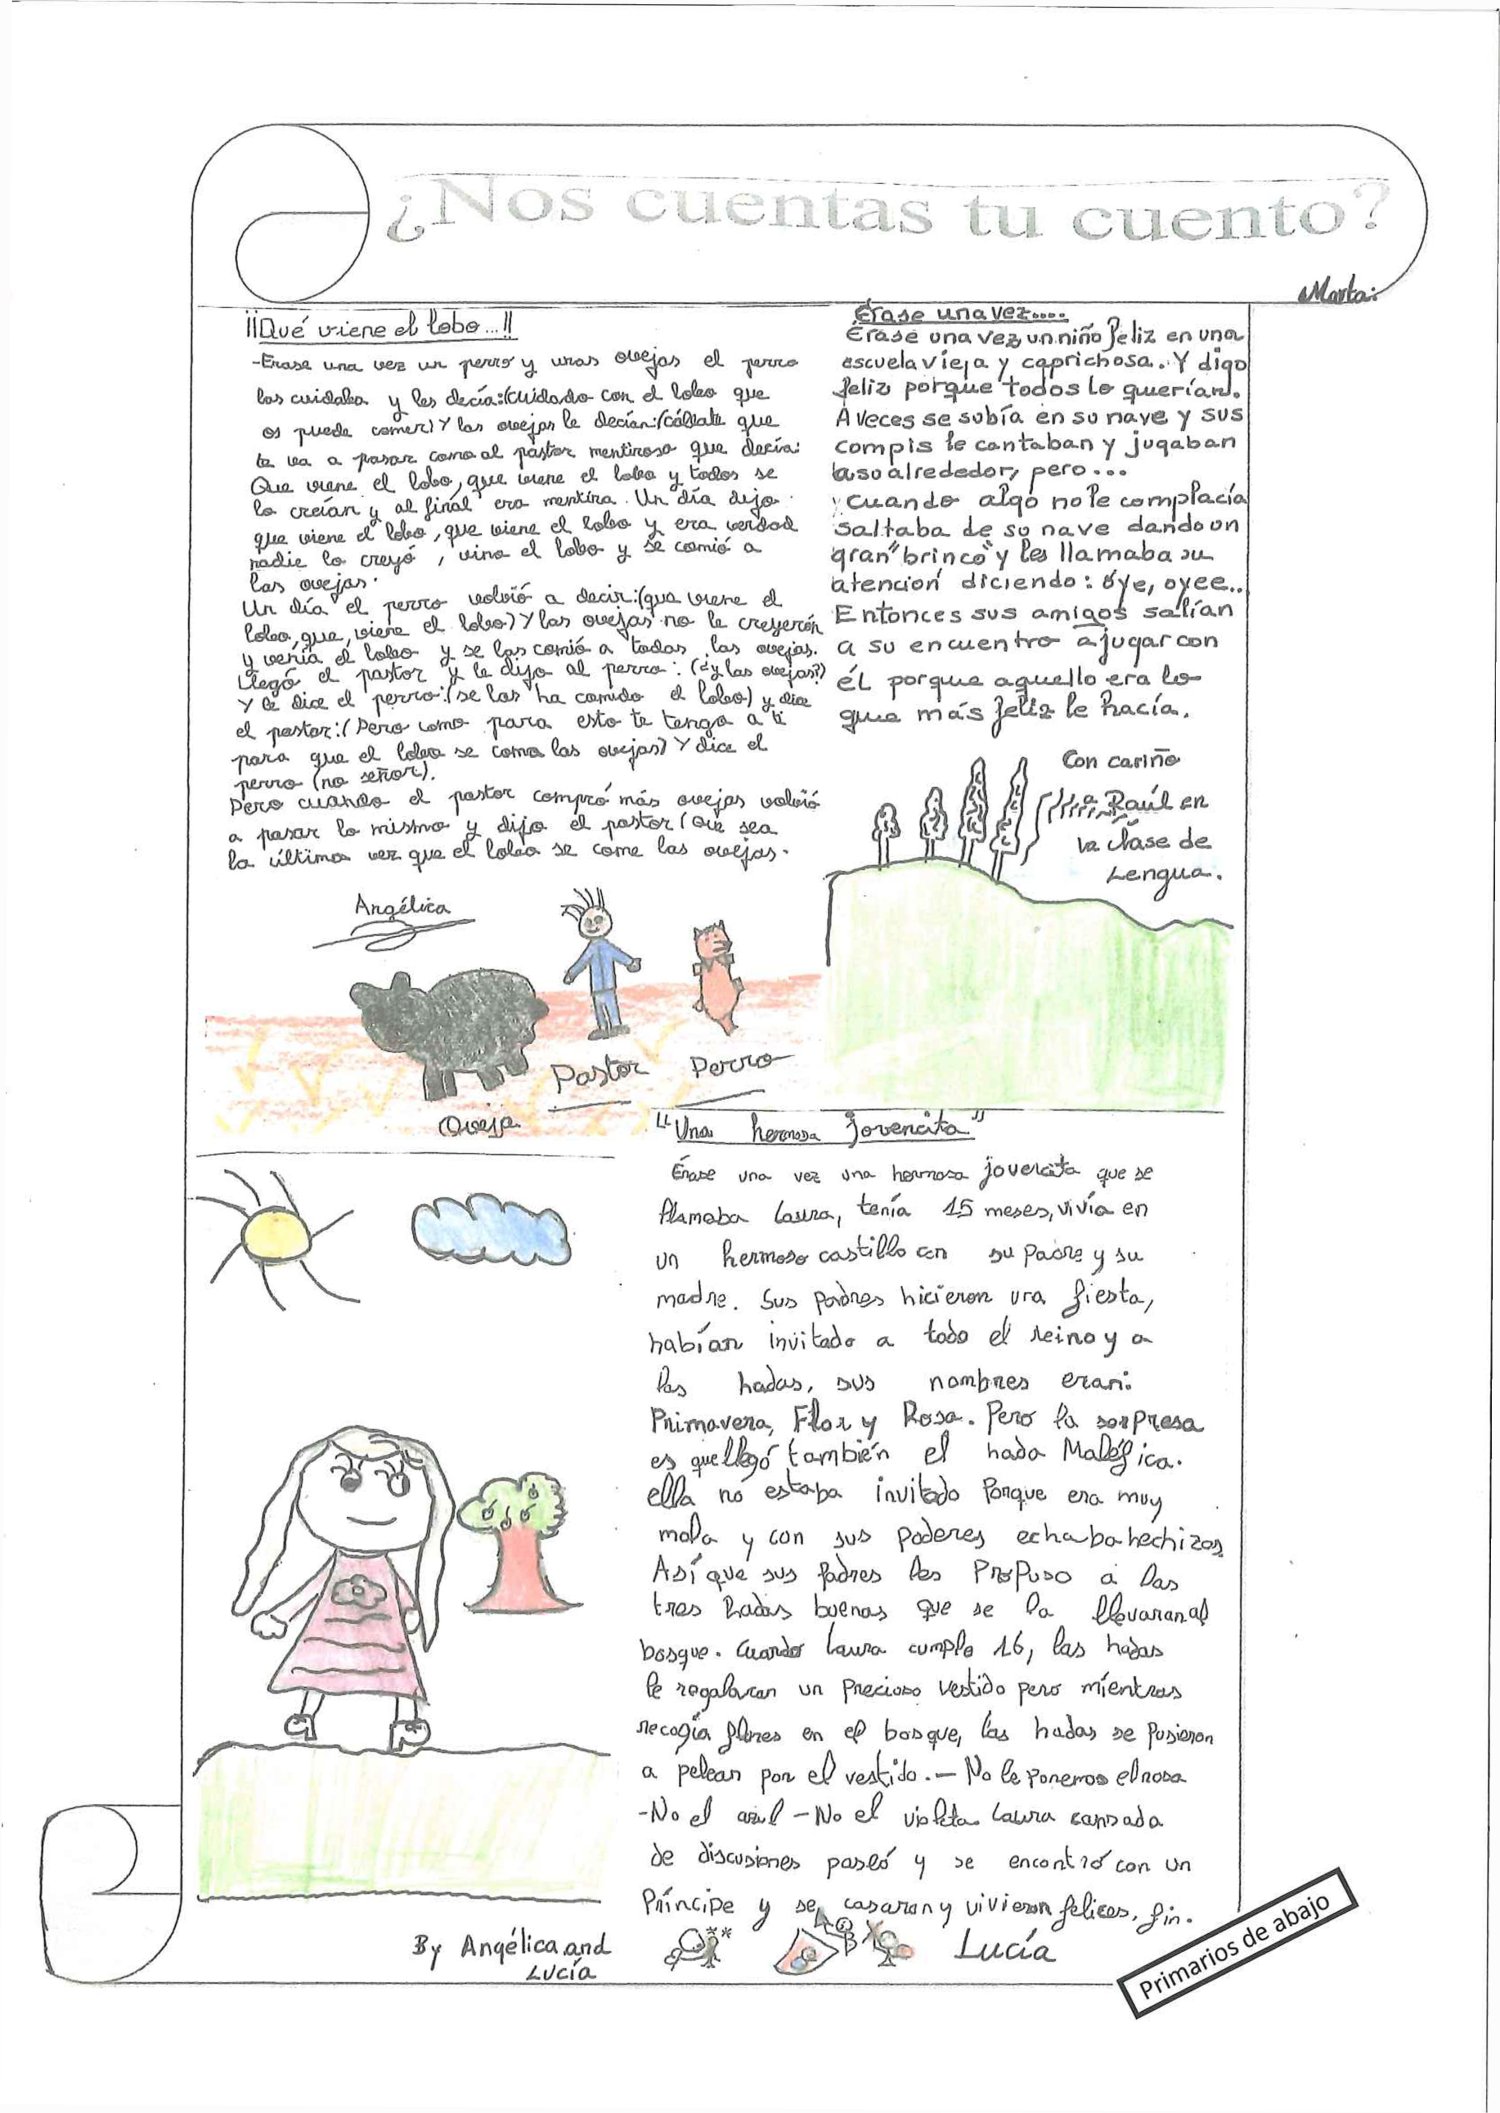 ¿Nos cuentas tu cuento?
¡¡Qué viene el lobo...!!
-Erase una vez un perro y unas ovejas el perro
las cuidaba y les decía:(cuidado con el lobo que
os puede comer) Y las ovejas le decían:(cállate que
te va a pasar como al pastor mentiroso que decía:
Que viene el lobo, que viene el lobo y todos se
lo creían y al final era mentira. Un día dijo
que viene el lobo, que viene el lobo y era verdad
nadie lo creyó, vino el lobo y se comió a
las ovejas.
Un día el perro volvió a decir:(que viene el
lobo, que, viene el lobo) Y las ovejas no le creyerón
y venía el lobo y se las comió a todas las ovejas.
Llegó el pastor y le dijo al perro: (¿y las ovejas?)
Y le dice el perro:(se las ha comido el lobo) y dice
el pastor:(Pero como para esto te tengo a ti
para que el lobo se coma las ovejas) Y dice el
perro (no señor).
Pero cuando el pastor compró más ovejas volvió
a pasar lo mismo y dijo el pastor (Que sea
la última vez que el lobo se come las ovejas.
Angélica
Pastor
Perro
Oveja
Marta:
Érase una vez....
Érase una vez, un niño feliz en una
escuela vieja y caprichosa. Y digo
feliz porque todos lo querían.
A veces se subía en su nave y sus
compis le cantaban y jugaban
a su alrededor, pero...
cuando algo no le complacía
saltaba de su nave dando un
gran "brinco" y les llamaba su
atención diciendo: oye, oyee...
Entonces sus amigos salían
a su encuentro a jugar con
él porque aquello era lo
que más feliz le hacía.
Con cariño
a Raúl en
la clase de
Lengua.
"Una hermosa jovencita"
Érase una vez una hermosa jovencita que se
llamaba Laura, tenía 15 meses, vivía en
un hermoso castillo con su padre y su
madre. Sus padres hicieron una fiesta,
habían invitado a todo el reino y a
las hadas, sus nombres eran:
Primavera, Flor y Rosa. Pero la sorpresa
es que llegó también el hada Maléfica.
ella no estaba invitado Porque era muy
mala y con sus poderes echaba hechizos
Así que sus padres les Propuso a las
tres hadas buenas que se la llevaran al
bosque. Cuando Laura cumplo 16, las hadas
le regalaran un precioso vestido pero mientras
recogía flores en el bosque, las hadas se pusieron
a pelear por el vestido.- No le ponemos el rosa
-No el azul -No el violeta Laura cansada
de discusiones paseó y se encontró con un
Príncipe y se casaron y vivieron felices, fin.
By Angélica and
Lucía
Lucía
Primarios de abajo